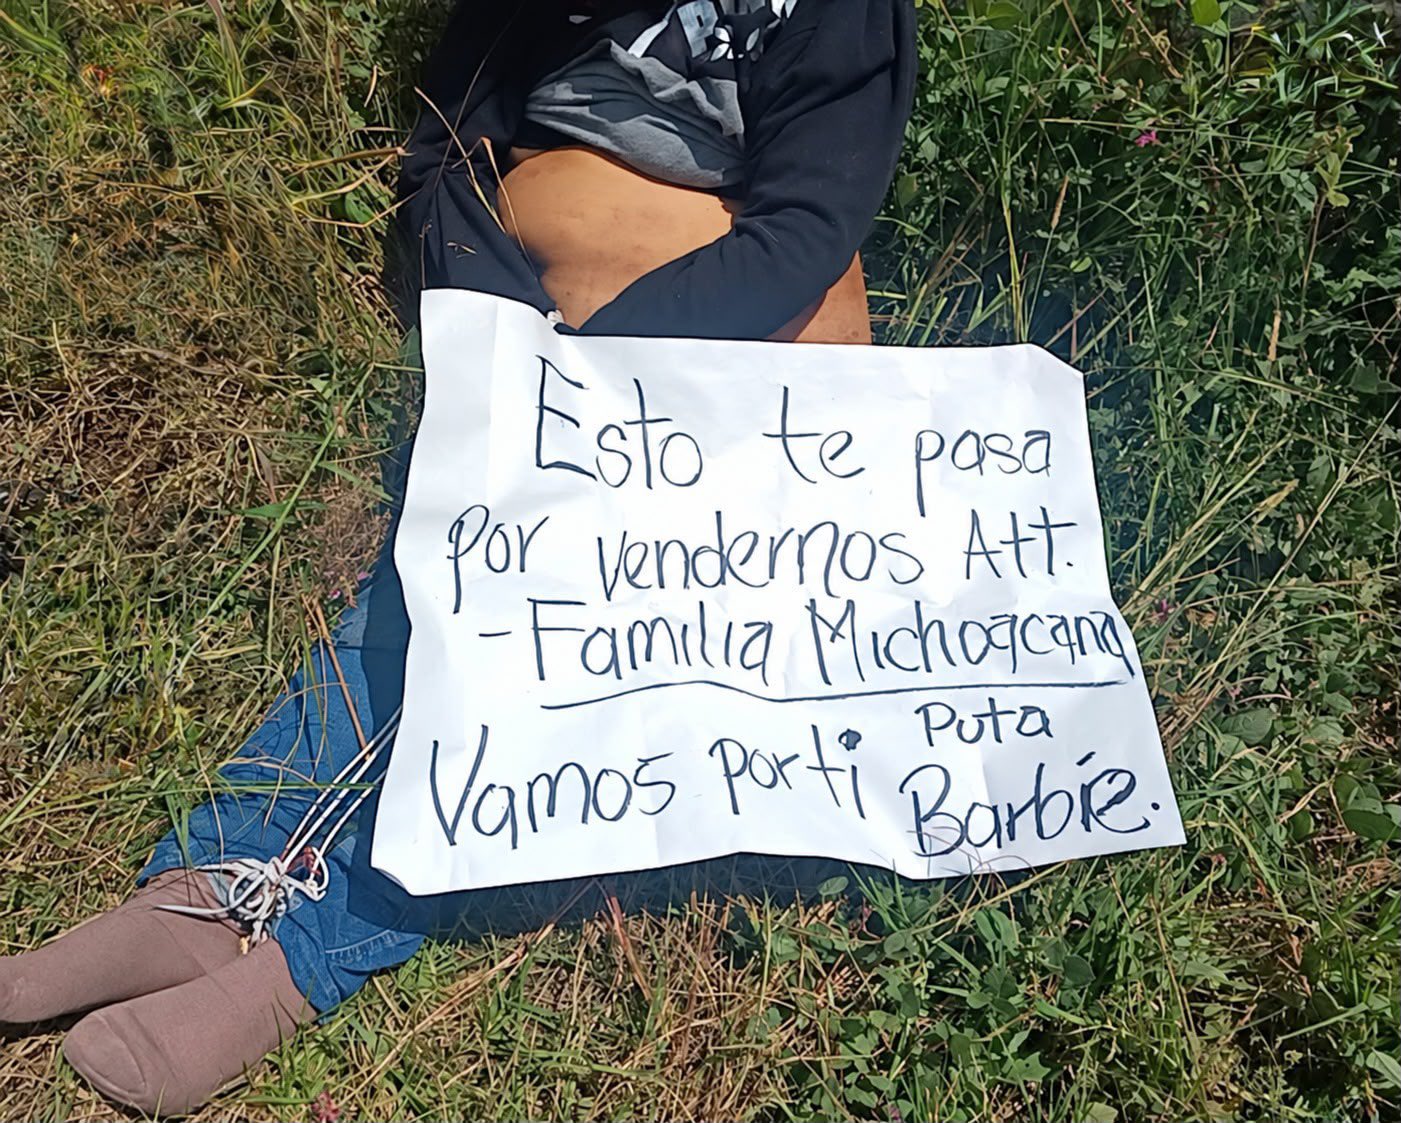 Esto te pasa
por vendernos Att.
- Familia Michoacana
Vamos por ti Puta
Barbie.